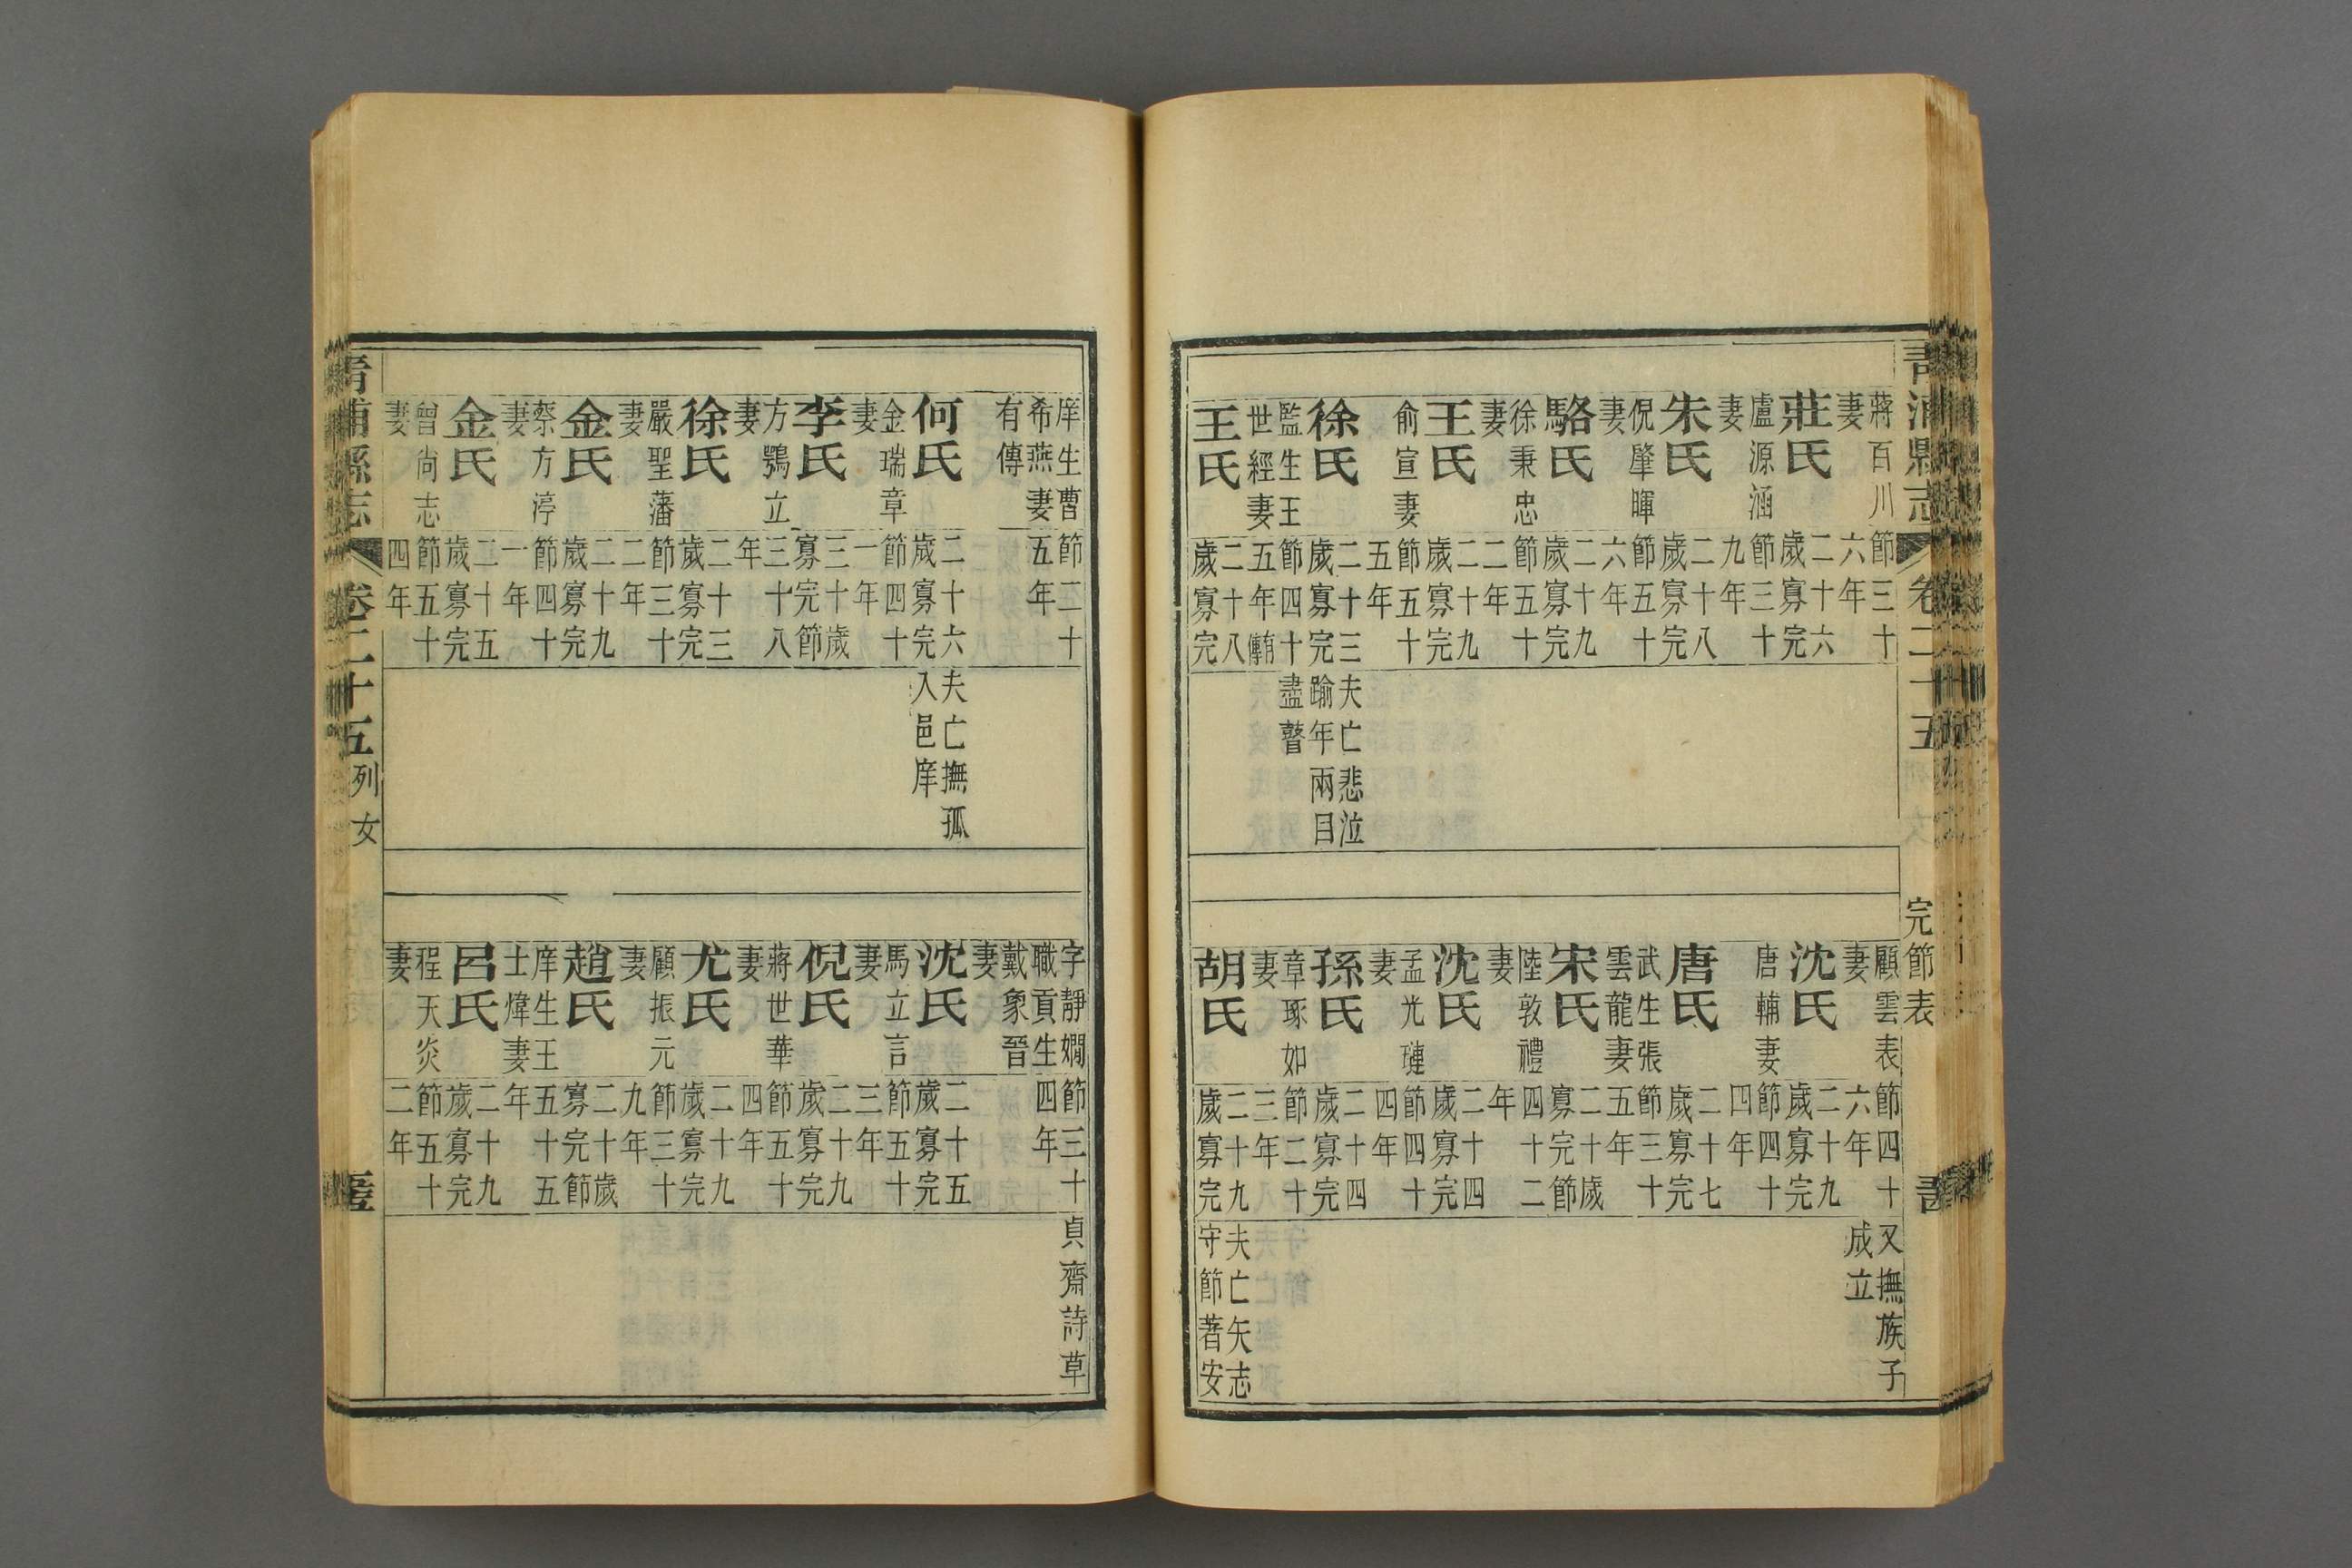 青浦縣志
卷二十五
完節表
蔣百川
妻
節三十
六年
莊氏
二十六
歲寡完
盧源涵
妻
節三十
九年
朱氏
二十八
歲寡完
倪肇暉
妻
節五十
六年
駱氏
二十九
歲寡完
徐秉忠
妻
節五十
二年
王氏
二十九
歲寡完
俞宣妻
節五十
五年
徐氏
二十三
歲寡完
夫亡悲泣
踰年兩目
盡瞽
監生王
世經妻
節四十
五年有傳
王氏
二十八
歲寡完
顧雲表
妻
節四十
六年
又撫族子
成立
沈氏
二十九
歲寡完
唐輔妻
節四十
四年
唐氏
二十七
歲寡完
武生張
雲龍妻
節三十
五年
宋氏
二十歲
寡完節
陸敦禮
妻
四十二
年
沈氏
二十四
歲寡完
孟光璉
妻
節四十
四年
孫氏
二十四
歲寡完
章琢如
妻
節二十
三年
胡氏
二十九
歲寡完
夫亡矢志
守節著安
庠生曹
希燕妻
有傳
節二十
五年
何氏
二十六
歲寡完
夫亡撫孤
入邑庠
金瑞章
妻
節四十
一年
李氏
三十歲
寡完節
方鶚立
妻
三十八
年
徐氏
二十三
歲寡完
嚴聖藩
妻
節三十
二年
金氏
二十九
歲寡完
蔡方渟
妻
節四十
一年
金氏
二十五
歲寡完
曾尚志
妻
節五十
四年
字靜嫺
職貢生
戴象晉
妻
節三十
四年
貞齋詩草
沈氏
二十五
歲寡完
馬立言
妻
節五十
三年
倪氏
二十九
歲寡完
蔣世華
妻
節五十
四年
尤氏
二十九
歲寡完
顧振元
妻
節三十
九年
趙氏
二十歲
寡完節
庠生王
士煒妻
五十五
年
呂氏
二十九
歲寡完
程天炎
妻
節五十
二年
青浦縣志
卷二十五
列女